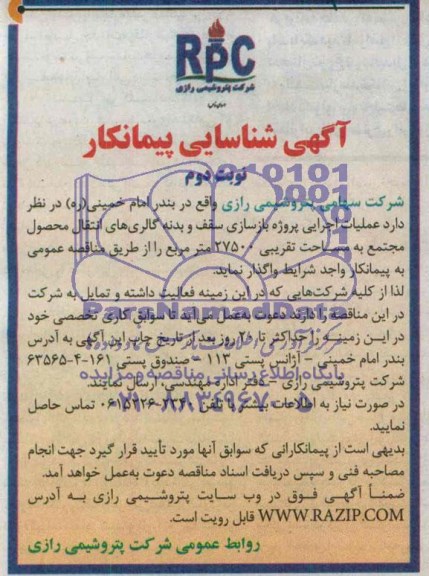 RPC
شرکت پتروشیمی رازی
آگهی شناسایی پیمانکار
نوبت دوم
شرکت سهامی پتروشیمی رازی واقع در بندر امام خمینی(ره) در نظر
دارد عملیات اجرایی پروژه بازسازی سقف و بدنه گالری‌های انتقال محصول
مجتمع به مساحت تقریبی ۲۷۵۰۰ متر مربع را از طریق مناقصه عمومی
به پیمانکار واجد شرایط واگذار نماید.
لذا از کلیه شرکت‌هایی که در این زمینه فعالیت داشته و تمایل به شرکت
در این مناقصه را دارند دعوت به‌عمل می‌آید تا سوابق کاری تخصصی خود
در این زمینه را حداکثر تا روز بعد از تاریخ چاپ این آگهی به آدرس
بندر امام خمینی - آژانس پستی ۱۱۳ - صندوق پستی ۱۶۱-۴-۶۳۵۶۵
شرکت پتروشیمی رازی - دفتر اداره مهندسی، ارسال نمایند.
در صورت نیاز به اطلاعات بیشتر با تلفن تماس حاصل
نمایید.
بدیهی است از پیمانکارانی که سوابق آنها مورد تأیید قرار گیرد جهت انجام
مصاحبه فنی و سپس دریافت اسناد مناقصه دعوت به‌عمل خواهد آمد.
ضمناً آگهی فوق در وب سایت پتروشیمی رازی به آدرس
WWW.RAZIP.COM قابل رویت است.
روابط عمومی شرکت پتروشیمی رازی
ParsNamadData
پایگاه اطلاع رسانی مناقصه و مزایده
۰۲۱-۸۸۳۴۹۶۷۰-۵